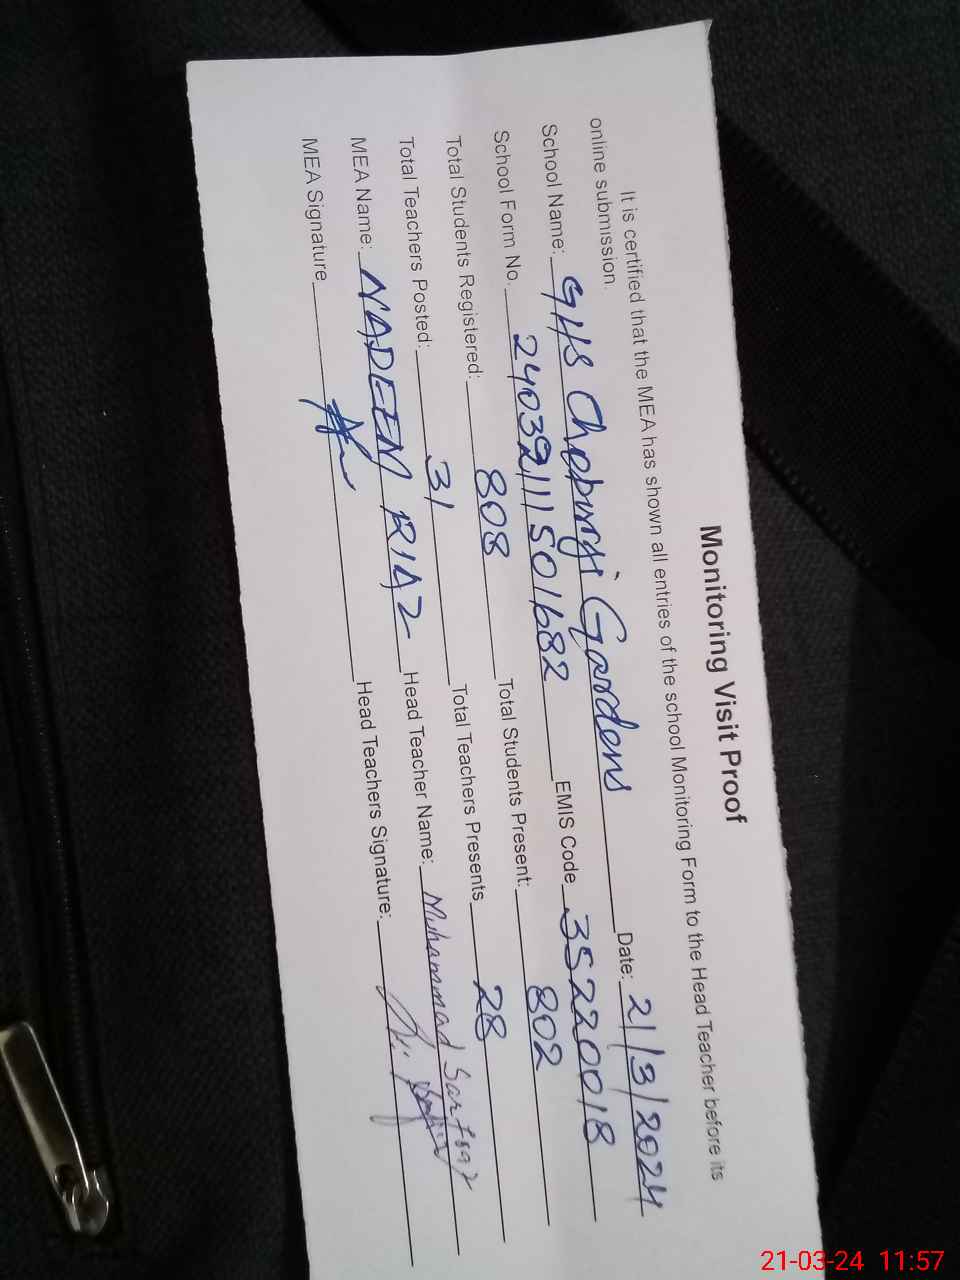 Monitoring Visit Proof
It is certified that the MEA has shown all entries of the school Monitoring Form to the Head Teacher before its
online submission.
School Name: GHS Choburji Gardens Date: 21/3/2024
School Form No. 24032111501682 EMIS Code 35220018
Total Students Registered: 808 Total Students Present: 802
Total Teachers Posted: 31 Total Teachers Presents 28
MEA Name: NADEEM RIAZ Head Teacher Name: Muhammad Sarfraz
MEA Signature Head Teachers Signature:
21-03-24 11:57